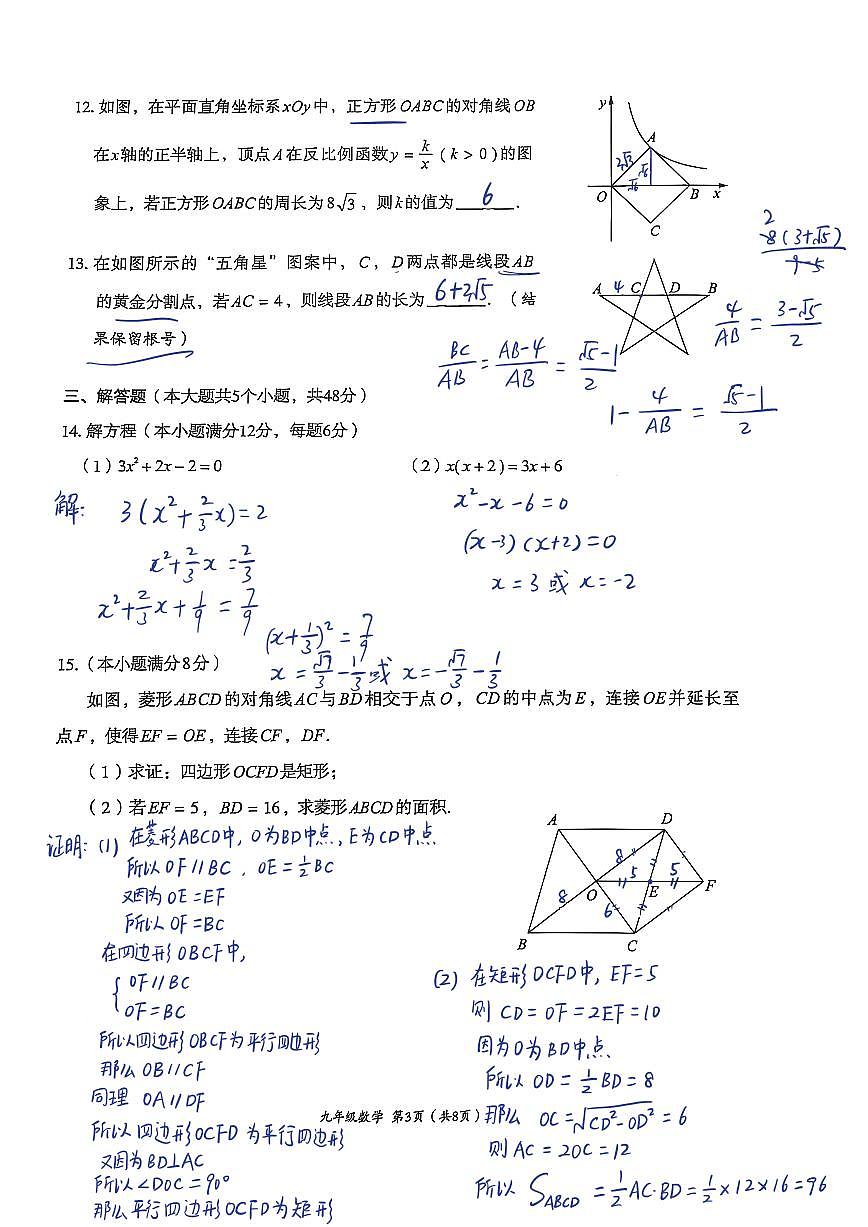 12. 如图，在平面直角坐标系xOy中，正方形OABC的对角线OB
在x轴的正半轴上，顶点A在反比例函数y = k/x ( k > 0 )的图
象上，若正方形OABC的周长为8√3，则k的值为 6 .
y
A
2√3
√6
√6
O
B
x
C
13. 在如图所示的“五角星”图案中，C，D两点都是线段AB
的黄金分割点，若AC = 4，则线段AB的长为 6+2√5 .（结
果保留根号）
A 4 C D B
2
8(3+√5)
9-5
4/AB = (3-√5)/2
BC/AB = (AB-4)/AB = (√5-1)/2
1 - 4/AB = (√5-1)/2
三、解答题（本大题共5个小题，共48分）
14. 解方程（本小题满分12分，每题6分）
（1）3x²+2x−2=0
（2）x(x+2)=3x+6
解: 3(x²+2/3x)=2
x²+2/3x=2/3
x²+2/3x+1/9=7/9
(x+1/3)²=7/9
x=√7/3-1/3或x=-√7/3-1/3
x²-x-6=0
(x-3)(x+2)=0
x=3或x=-2
15.（本小题满分8分）
如图，菱形ABCD的对角线AC与BD相交于点O，CD的中点为E，连接OE并延长至
点F，使得EF = OE，连接CF，DF.
（1）求证：四边形OCFD是矩形；
（2）若EF = 5，BD = 16，求菱形ABCD的面积.
A
D
8
5
5
O
E
F
8
6
B
C
证明: (1) 在菱形ABCD中，O为BD中点，E为CD中点
所以OF//BC，OE=1/2BC
又因为OE=EF
所以OF=BC
在四边形OBCF中，
{ OF//BC
OF=BC
所以四边形OBCF为平行四边形
那么OB//CF
同理 OA//DF
所以四边形OCFD为平行四边形
又因为BD⊥AC
所以∠DOC=90°
那么平行四边形OCFD为矩形
(2) 在矩形OCFD中，EF=5
则CD=OF=2EF=10
因为O为BD中点
所以OD=1/2BD=8
那么 OC=√(CD²-OD²)=6
则AC=2OC=12
所以 S_ABCD=1/2AC·BD=1/2×12×16=96
九年级数学 第3页（共8页）